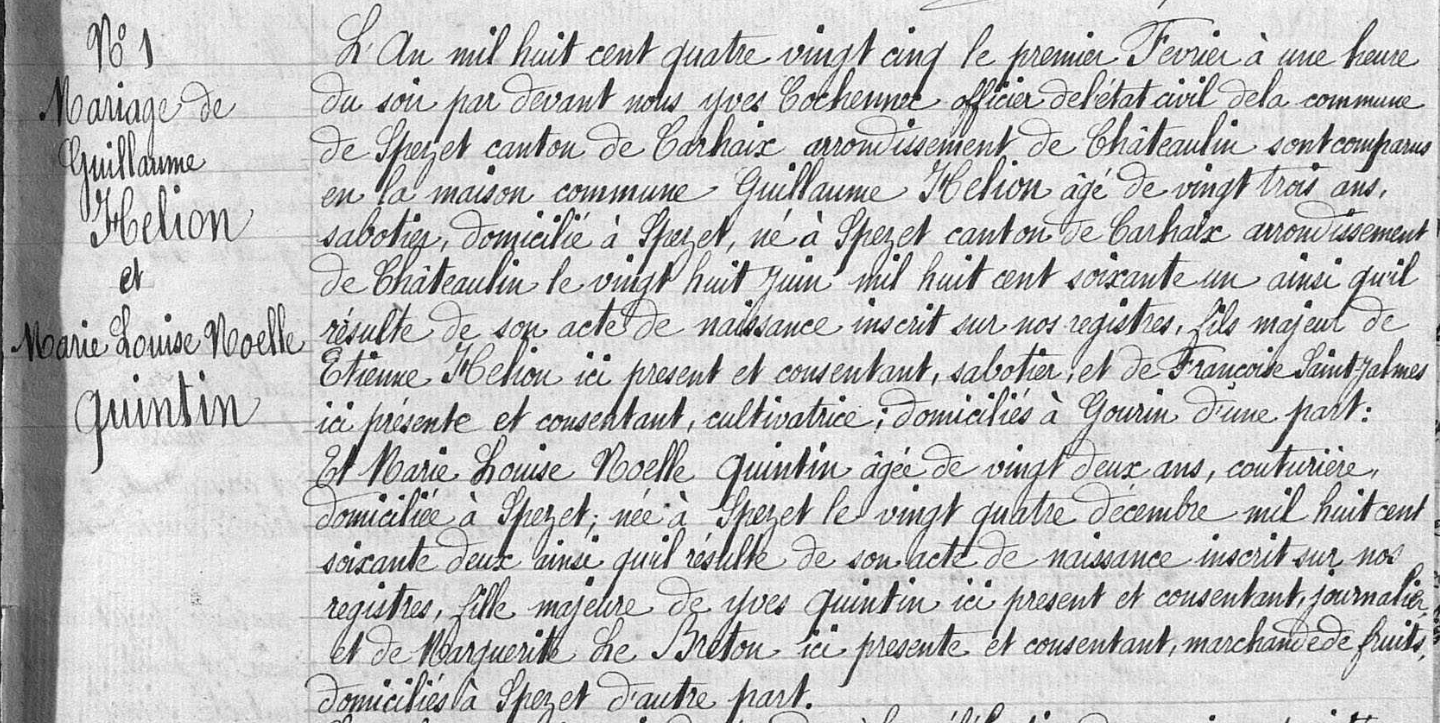 N° 1
Mariage de
Guillaume
Helion
et
Marie Louise Noelle
quintin
L'An mil huit cent quatre vingt cinq le premier Fevrier à une heure
du soir par devant nous yves Cochennec officier del'état civil dela commune
de Spezet canton de Carhaix arrondissement de Châteaulin sont comparus
en la maison commune Guillaume Helion âgé de vingt trois ans,
sabotier, domicilié à Spezet, né à Spezet canton de Carhaix arrondissement
de Châteaulin le vingt huit juin mil huit cent soixante un ainsi qu'il
résulte de son acte de naissance inscrit sur nos registres, fils majeur de
Etienne Helion ici present et consentant, sabotier, et de Françoise Saint jalmes
ici présente et consentant, cultivatrice; domiciliés à Gourin d'une part:
Et Marie Louise Noelle quintin âgée de vingt deux ans, couturière,
domiciliée à Spezet; née à Spezet le vingt quatre décembre mil huit cent
soixante deux ainsi qu'il résulte de son acte de naissance inscrit sur nos
registres, fille majeure de yves quintin ici present et consentant, journalier
et de Marguerite Le Breton ici presente et consentant, marchande de fruits,
domiciliés à Spezet d'autre part.